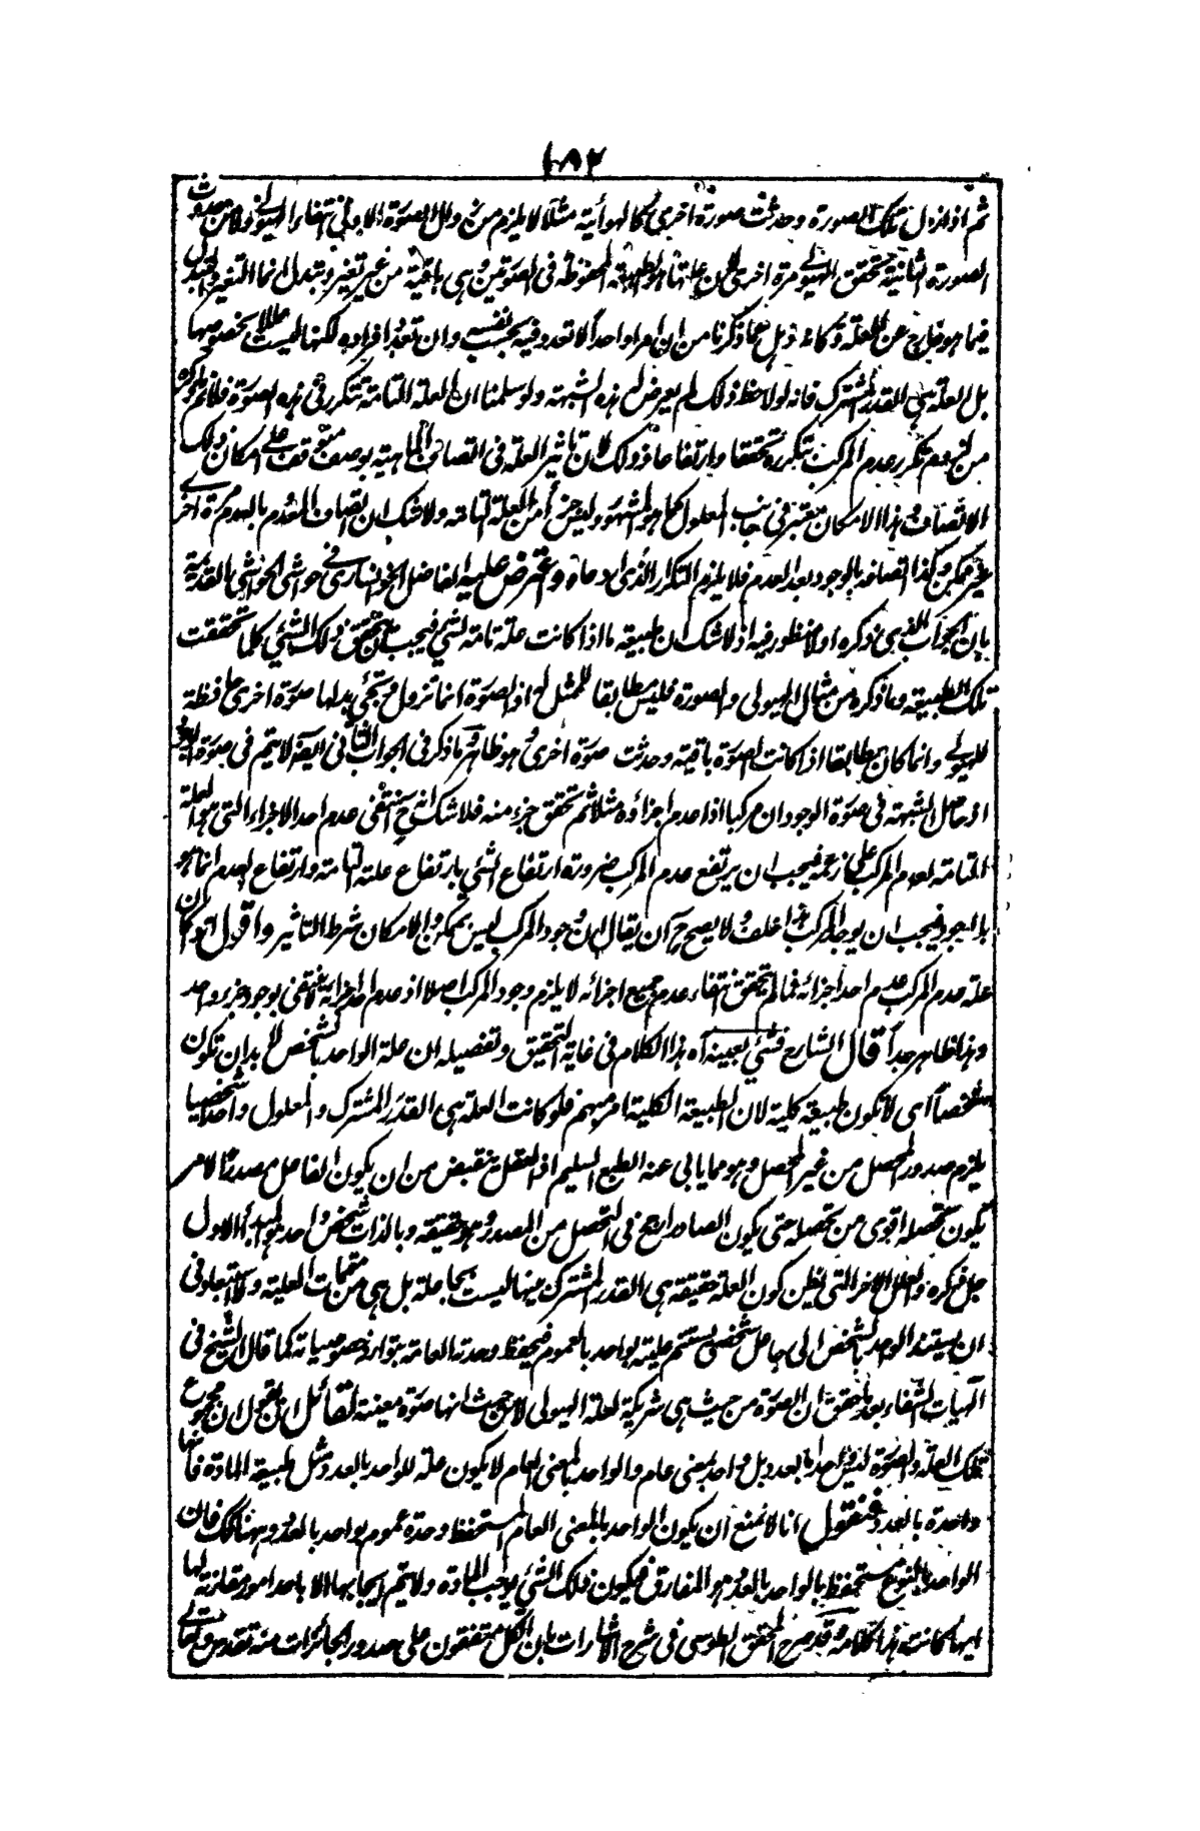 ١٨٢
ثم اذا زال تلك الصورة وحدثت صورة اخرى كالهوائية مثلا لا يلزم من زوال الصورة الاولى انتفاء الهيولى ولا من حدوث
الصورة الثانية تحقق الهيولى مرة اخرى لان علتها هو الطبيعة المحفوظة فى الصورتين وهى باقية من غير تغير وتبدل انما التغير والتبدل
فيما هو خارج عن العلة وكانه ذهل عما ذكرنا من ان امرا واحدا لا تعدد فيه بحسب نفسه وان تعدد افراده لكنها ليست عللا بخصوصها
بل العلة هى القدر المشترك فانه لو لاحظ ذلك لم يعرض له هذه الشبهة ولو سلمنا ان العلة التامة تتكرر فى هذه الصورة فلا نم لزوم
من تكرر عدم المركب بتكرره تحققا وارتفاعا وذلك لان تاثير العلة فى اتصاف الماهية بوصف متوقف على امكان ذلك
الاتصاف وهذا الامكان معتبر فى جانب المعلول كما هو المشهور وليس جزأ من العلة التامة ولا شك ان اتصاف المعدم بالعدم مرة اخرى
غير ممكن وكذا اتصافه بالوجود بعد العدم فلا يلزم التكرار الذى ادعاه واعترض عليه الفاضل الخوانسارى فى حواشى الحواشى القديمة
بان الجواب الذى ذكره اولا منظور فيه اذ لا شك ان طبيعة ما اذا كانت علة تامة لشئ فيجب ان تحقق ذلك الشئ كلما تحققت
تلك الطبيعة وما ذكره من مثال الهيولى والصورة فليس مطابقا للمثل له اذ الصورة انما تزول وتجئ بدلها صورة اخرى حافظة
للهيولى وانما كان مطابقا اذا كانت الصورة باقية وحدثت صورة اخرى وهو ظاهر وما ذكر فى الجواب الثانى ايضا لا يتم فى صورة
اذ حاصل الشبهة فى صورة الوجود ان مركبا اذا عدم اجزاؤه مثلا ثم تحقق جزء منه فلا شك انه ح ينتفى عدم احد الاجزاء التى هو العلة
التامة لعدم المركب على زعمه فيجب ان يرتفع عدم المركب ضرورة ارتفاع الشئ بارتفاع علته التامة وارتفاع العدم انما هو
بالوجود فيجب ان يوجد المركب هذا خلف ولا يصح ح ان يقال ان وجود المركب ليس بممكن والامكان شرط التاثير واقول لو كان
علة عدم المركب عدم احد اجزائه فما لم تحقق انتفاء عدم جميع اجزائه لا يلزم وجود المركب اصلا اذ عدم احد اجزائه لا ينتفى بوجود جزء واحد
وهذا ظاهر جدا قال الشارح فشئ بعينه آه هذا الكلام فى غاية التحقيق وتفصيله ان علة الواحد بالشخص لا بد ان تكون
متشخصا اى لا تكون طبيعة كلية لان الطبيعة الكلية امر مبهم فلو كانت العلة هى القدر المشترك والمعلول واحدا شخصيا
يلزم صدور المحصل من غير المحصل وهو مما يابى عنه الطبع السليم اذ العقل ينقبض من ان يكون الفاعل مصدرا لامر
يكون تحصله اقوى من تحصله حتى يكون الصادر ارجح فى التحصل من المصدر وهو حقيقة وبالذات شخص واحد هو المبدأ الاول
جل ذكره والعلل الاخر التى يظن كون العلة حقيقة هى القدر المشترك منها ليست بجاعلة بل هى من متممات العلية ولا استبعاد فى
ان يستند الواحد بالشخص الى جاعل شخص يستتم عليته بواحد بالعموم فيحفظ وحدته العامة بتوارد خصوصياته كما قال الشيخ فى
الهيات الشفاء بعد ما حقق ان الصورة من حيث هى شريكة لعلة الهيولى لا من حيث انها صورة معينة لقائل ان يقول ان مجموع
تلك العلة والصورة ليس واحدا بالعدد بل واحد بمعنى عام والواحد بالمعنى العام لا يكون علة للواحد بالعدد مثل طبيعة المادة فانها
واحدة بالعدد فنقول انا لا نمنع ان يكون الواحد بالمعنى العام المستحفظ وحدة عمومه بواحد بالعدد وههنا كك فان
الواحد بالنوع مستحفظ بالواحد بالعدد هو المفارق فيكون ذلك الشئ يوجب المادة ولا يتم ايجابها الا باحد امور مقارنة لها
ايها كانت هذا كلامه وقد صرح المحقق الطوسى فى شرح الاشارات بان الكل متفقون على صدور الجائزات منه تقدس وتعالى